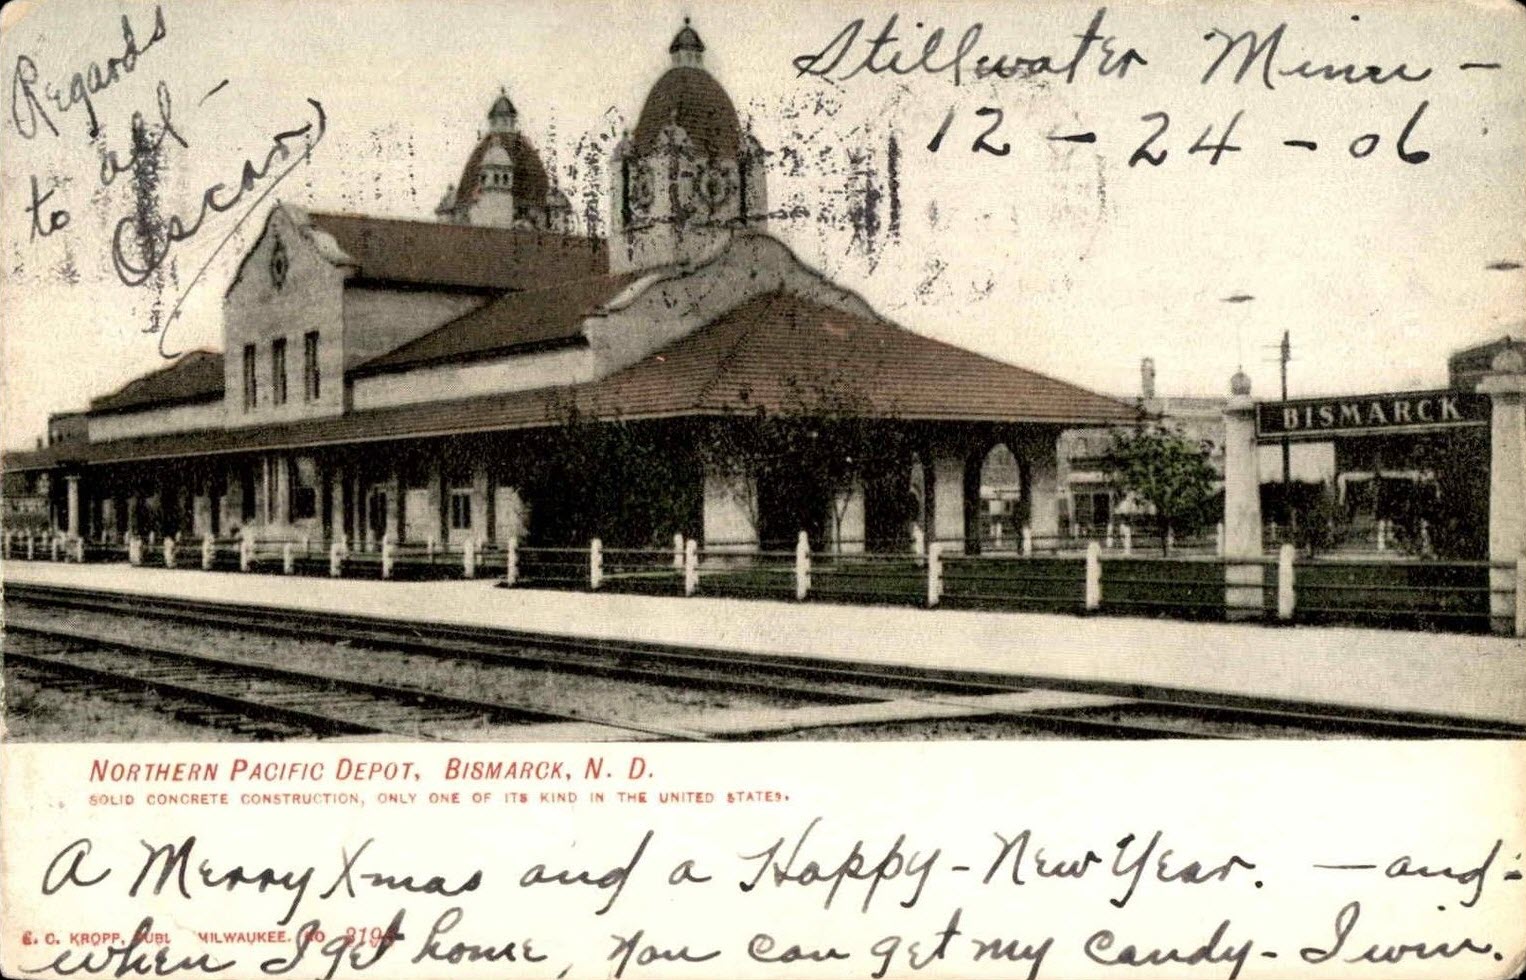 Regards
to all -
Oscar
Stillwater Minn -
12 - 24 - 06
BISMARCK
NORTHERN PACIFIC DEPOT, BISMARCK, N. D.
SOLID CONCRETE CONSTRUCTION, ONLY ONE OF ITS KIND IN THE UNITED STATES.
A Merry Xmas and a Happy - New Year. - and -
E. C. KROPP, PUBL MILWAUKEE. NO
when I get home, you can get my candy - I win.